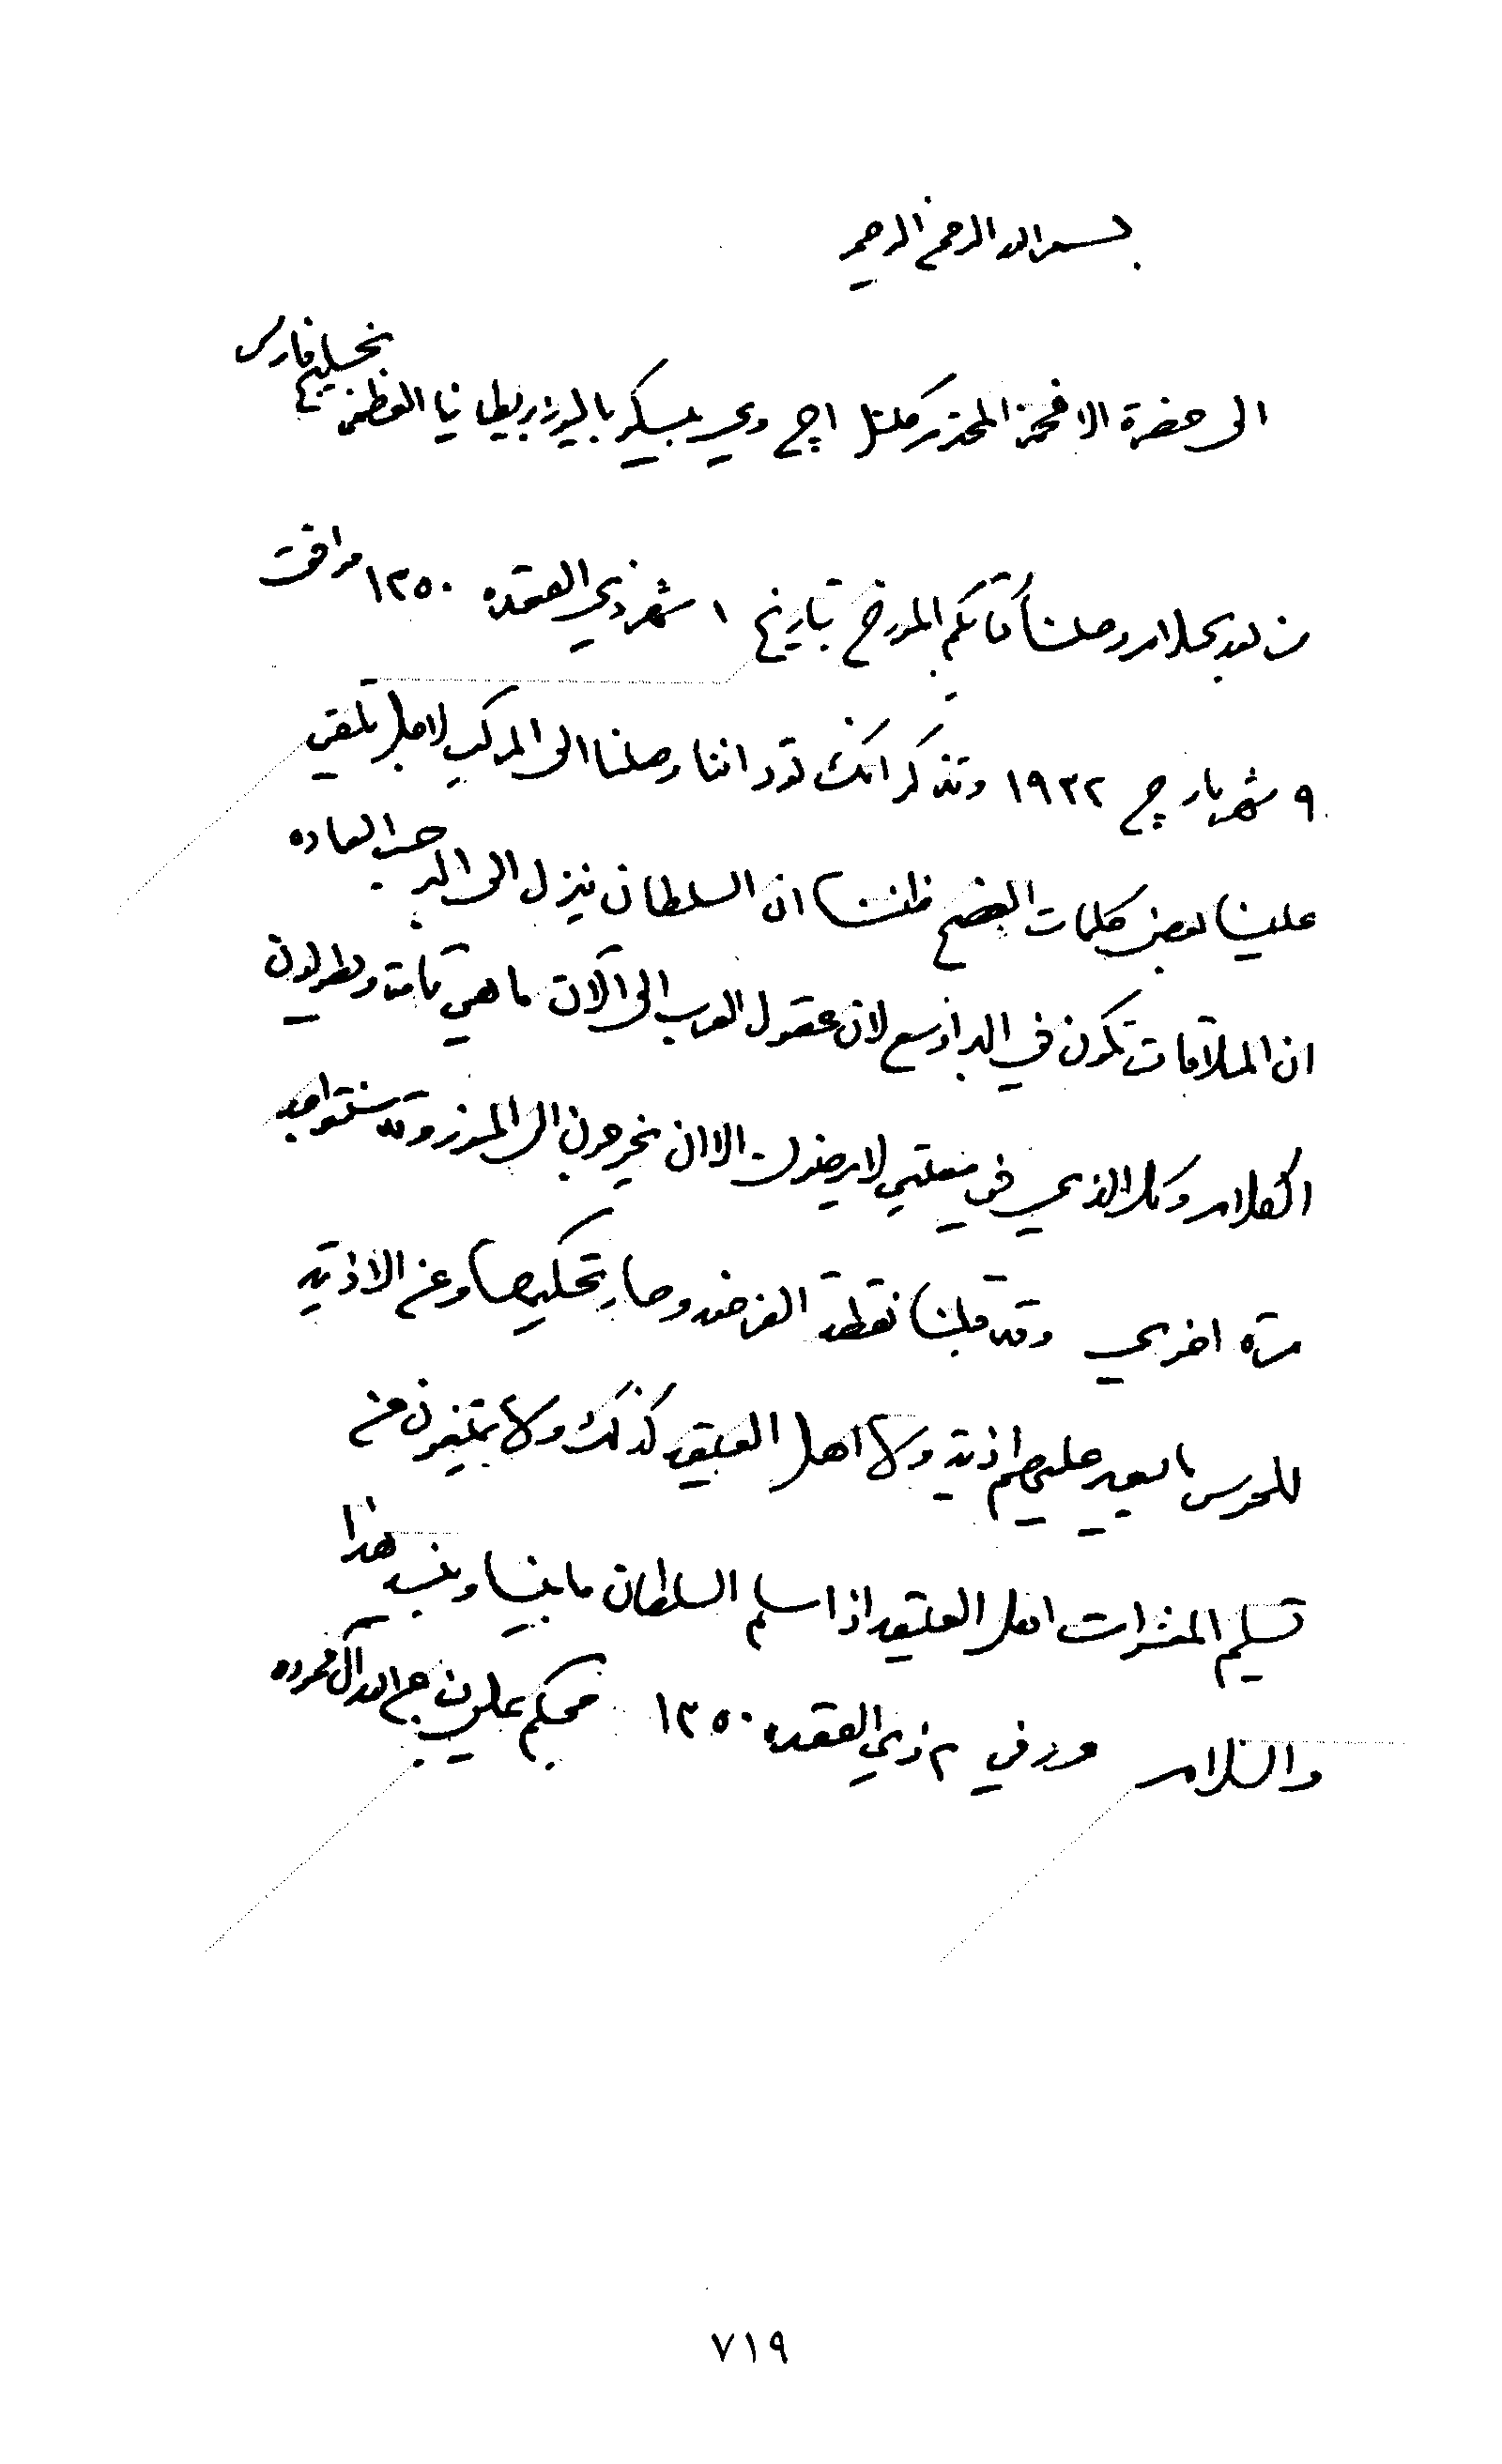 بسم الله الرحمن الرحيم
الى حضرة الافخم المحترم كلنل اچ وي بسكو باليوز بريطانيا العظمى بخليج فارس
من بعد السلام وصلنا كتابكم المورخ بتاريخ ١ شهر ذي القعده ١٣٥٠ موافق
٩ شهر مارچ ١٩٣٢ وتذكر انك تود اننا وصلنا الى المركب لاجل تلقي
علينا بعض كلمات النصح ظننا ان السلطان ينزل الى البر حسب العاده
ان الملاقات تكون في البر اوسع لان عقول العرب الى الآن ما هي تامة ويطولون
الكلام وكل الذي في معيتي لا يرضون الا ان يخرجون الى المنور وقد سنتواجه
مره اخرى وقد قبلنا نقطة الفرضه وصار تحكيمها وعن الاذية
للحرس ما يصير عليهم اذية ولا اهل العتيقه كذلك ولا يمتنعون من
تسليم العشرات اهل العتيقه اذا سلم السلطان ما بيننا وبينه هذا
والسلام حرر في ٢ ذي القعده ١٣٥٠ محبكم علي بن عبدالله آل حموده
٧١٩